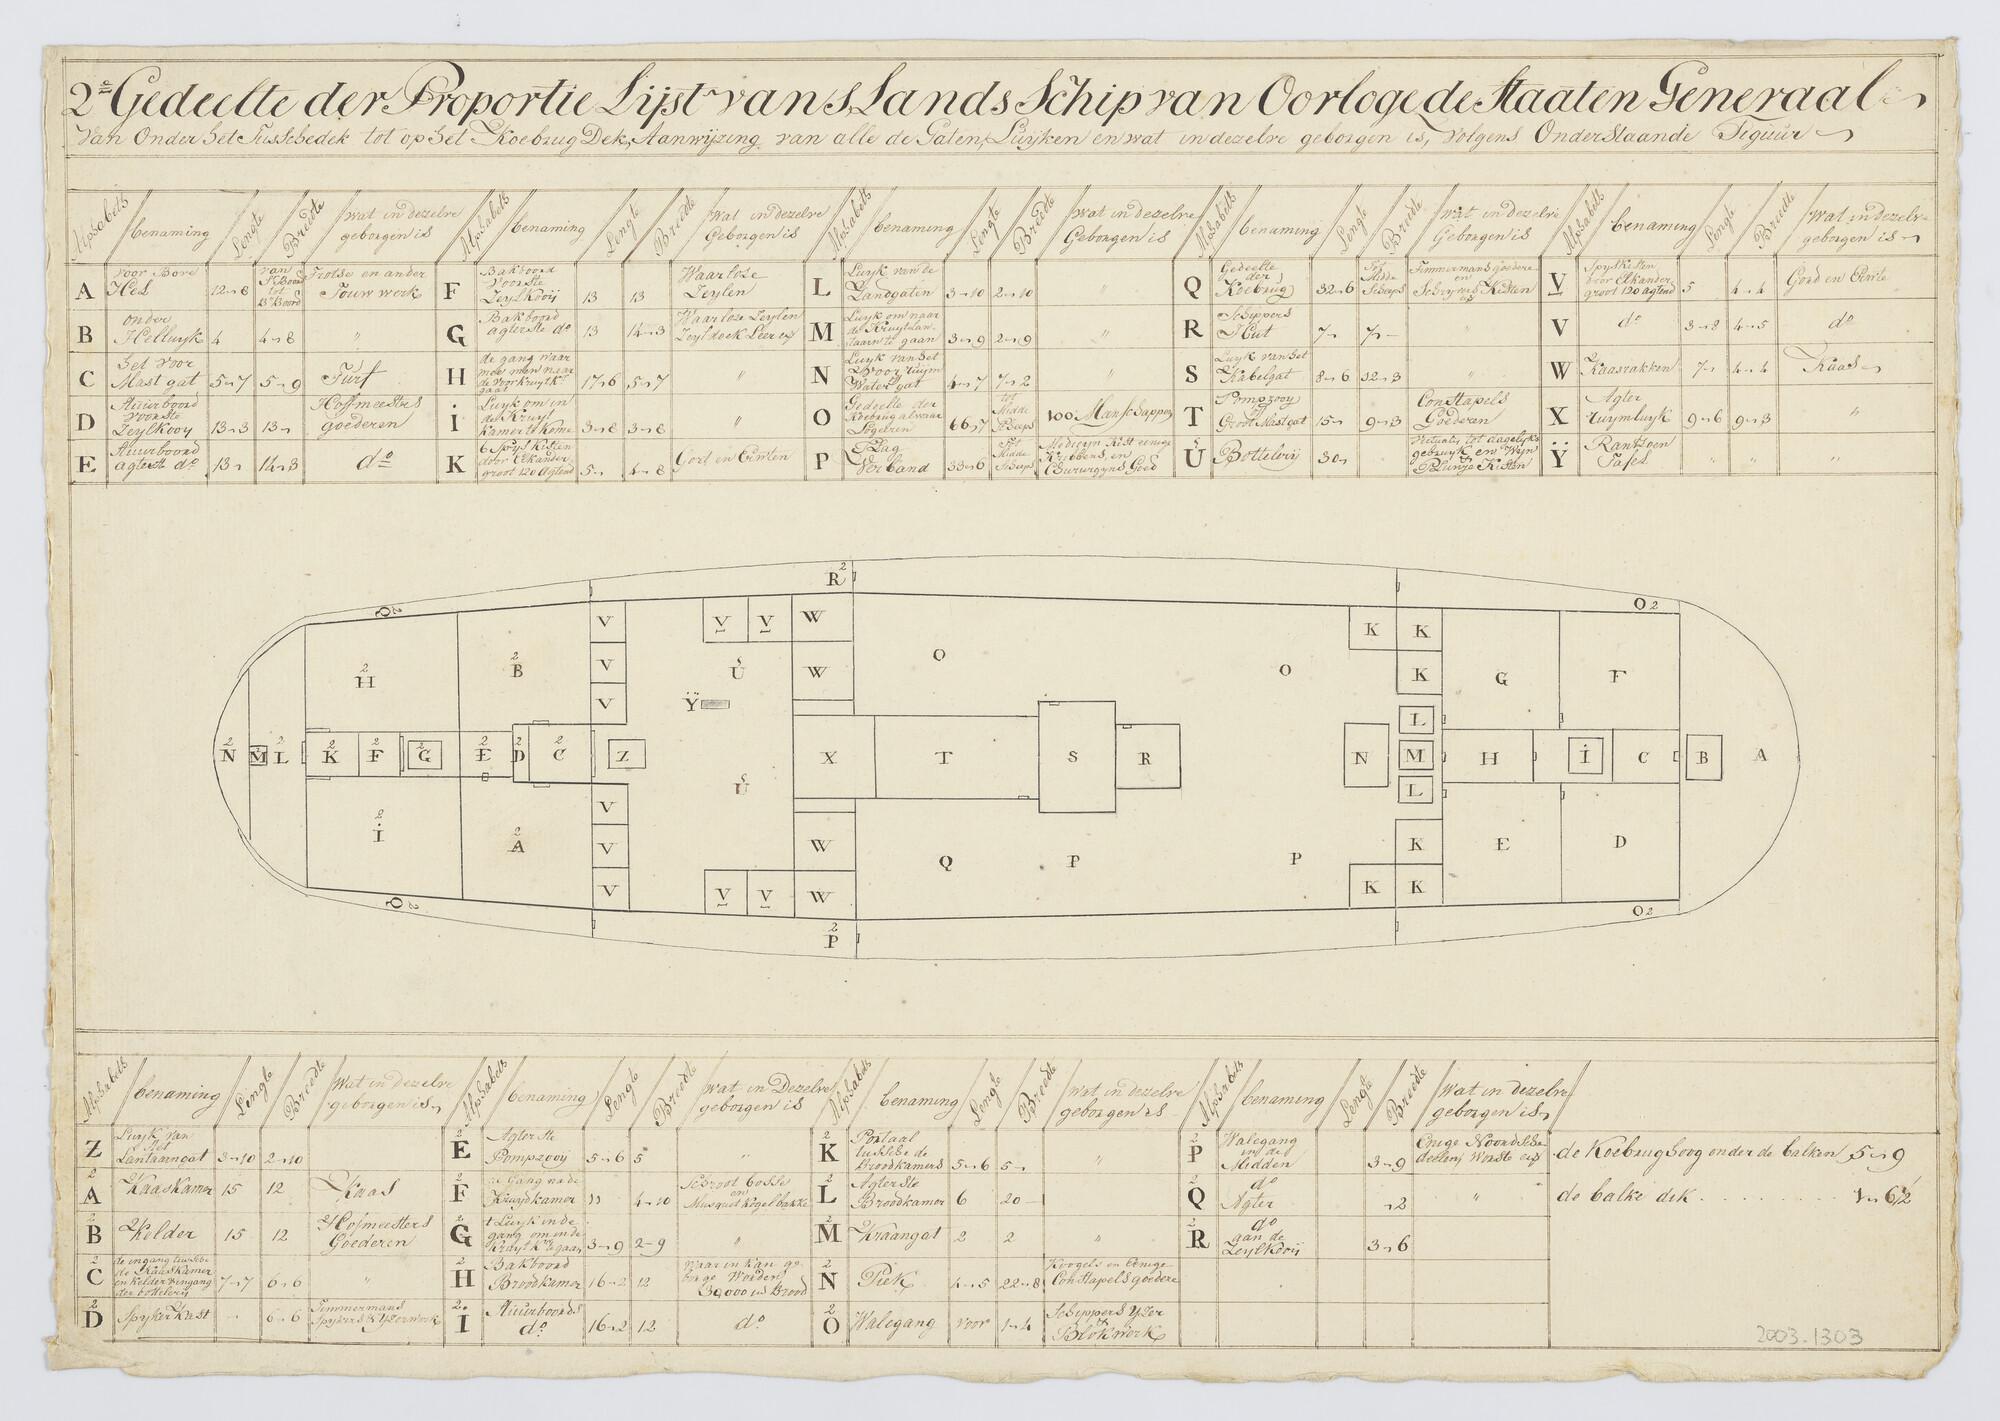 2de Gedeelte der Proportie Lijst van s Lands Schip van Oorloge de Staaten Generaal
Van Onder het Tusschedek tot op het Koebrug Dek, Aanwijzing van alle de Gaten, Luyken en wat in dezelve geborgen is, volgens Onderstaande Figuur
Alphabets benaming Lengte Breedte Wat in dezelve geborgen is Alphabets benaming Lengte Breedte Wat in dezelve Geborgen is Alphabets benaming Lengte Breedte Wat in dezelve Geborgen is Alphabets benaming Lengte Breedte Wat in dezelve Geborgen is Alphabets benaming Lengte Breedte Wat in dezelve geborgen is
A voor Bove Hel 12-8 van St Boord tot B Boord Trotse en ander Touw werk
F Bakboord voorste Zeylkooij 13 13 Waarloze Zeylen
L Luyk van de Zandgaten 3-10 2-10 "
Q Gedeelte der Koebrug 32-6 Tot Midde Scheeps Timmermans goedere en Schryvers Kisten
V Spyskisten voor Elkander groot 130 agtend 5 4-4 Gord en Erwte
B onder Helluyk 4 4-8 "
G Bakboord agterste do 13 14-3 Waarloze Zeylen Zeyldoek Leer
M Luyk om naar de Kruytlantaarn te gaan 3-9 2-9 "
R Schippers Hut 7- 7- "
V do 3-8 4-5 do
C het voor Mast gat 5-7 5-9 Turf
H de gang waar mee men naar de voor kruytkr gaat 17-6 5-7 "
N Luyk van het Voor ruym Water gat 4-7 7-2 "
S Luyk van het Kabelgat 8-6 12-3 "
W Kaasrakken 7- 4-4 Kaas
D Stuurboord voorste Zeylkooy 13-3 13- Hoffmeesters goederen
I Luyk om in de Kruyt kamer te kome 3-8 3-8 "
O Gedeelte der Koebrug alwaar Logeeren 66-7 tot Midde Scheeps 100 Manschappen
T Pompzooy of Groot Mastgat 15- 9-3 Constapels Goederen
X Agter ruymluyk 9-6 9-3 "
E Stuurboord agterste do 13- 14-3 do
K 6 Spys Kisten door Elkander groot 120 Agtend 5- 4-8 Gort en Erwten
P Plug Verband 33-6 Tot Midde Scheeps Medicyn Kist eenige Kribbens, en Chirurgyns Goed
U Bottelerij 30- victualy tot dagelyks gebruyk en Wyn Plunje Kisten
Ÿ Rantsoen Tafel " " "
R2
Q2 O2
V V V W K K
H2 B2 V U W O O K G F
V Ÿ
L
N2 M2 L2 K2 F2 G2 E2 D2 C2 Z X T S R N M H I C B A
V U L
I2 A2 V W Q P P K E D
V V V W K K
Q2 O2
P2
Alphabets benaming Lengte Breedte Wat in dezelve geborgen is Alphabets benaming Lengte Breedte Wat in Dezelve geborgen is Alphabets benaming Lengte Breedte Wat in dezelve geborgen is Alphabets benaming Lengte Breedte Wat in dezelve geborgen is
Z Luyk van Het Lantaarngat 3-10 2-10
E2 Agterste Pompzooij 5-6 5 "
K2 Portaal tussche de Broodkamers 5-6 5- "
P2 Walegang in de Midden 3-9 Enige Noordsche deelen
de Koebrug hoog onder de balken 5-9
A2 Kaaskamer 15 12 Kaas
F2 de Gang na de Kruydkamer 11 4-10 Schroot bosse en Musquet Kogel bakke
L2 Agterste Broodkamer 6 20-
Q2 do Agter -2 "
de balke dik 1-6½
B2 Kelder 15 12 Hofmeesters Goederen
G2 t Luyk in de gang om in de Kruyt Kr te gaan 3-9 2-9 "
M2 Kraangat 2 2 "
R2 do aan de Zeylkooij 3-6
C2 de ingang tussche de Kaaskamer en kelder ingang der bottelerij 7-7 6-6 "
H2 Bakboord Broodkamer 16-2 12 Waar in kan geborge Worden 30,000 Brood
N2 Piek 4-5 22-8 Koogels en Einige Constapels goedere
D2 Spyker Kast " 6-6 Timmermans Spykers & Yzerwerk
I2 Stuurboords do 16-2 12 do
O2 Walegang voor 1-4 Schippers Yzer & Blokwerk
2003.1303